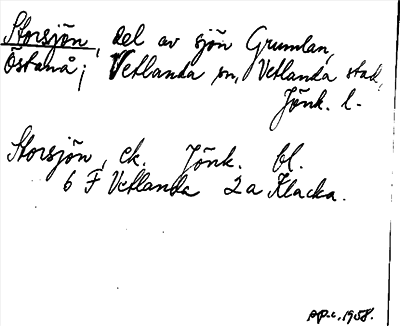 Storsjön, del av sjön Grumlan,
Östanå; Vetlanda sn, Vetlanda stad,
Jönk. l.
Storsjön, ek. Jönk. bl.
6 F Vetlanda 2a Klacka.
pp.c. 1958.